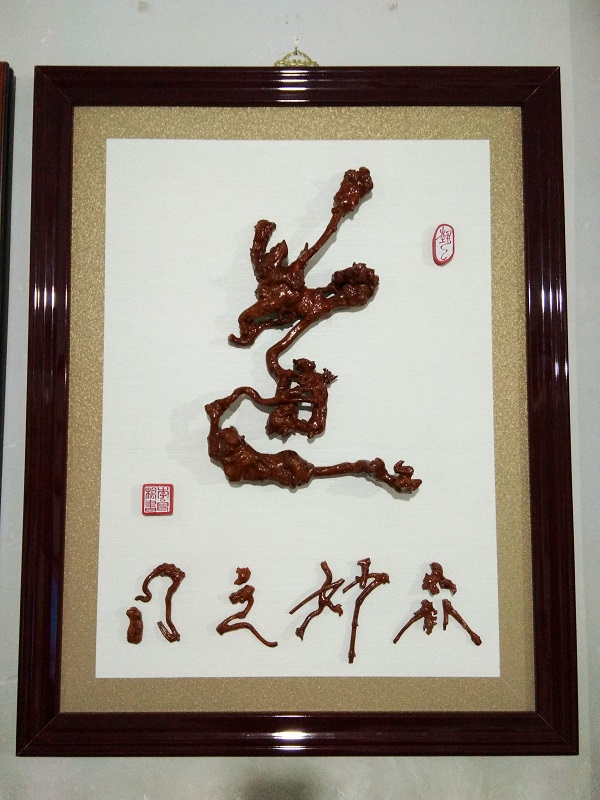 道
众妙之门